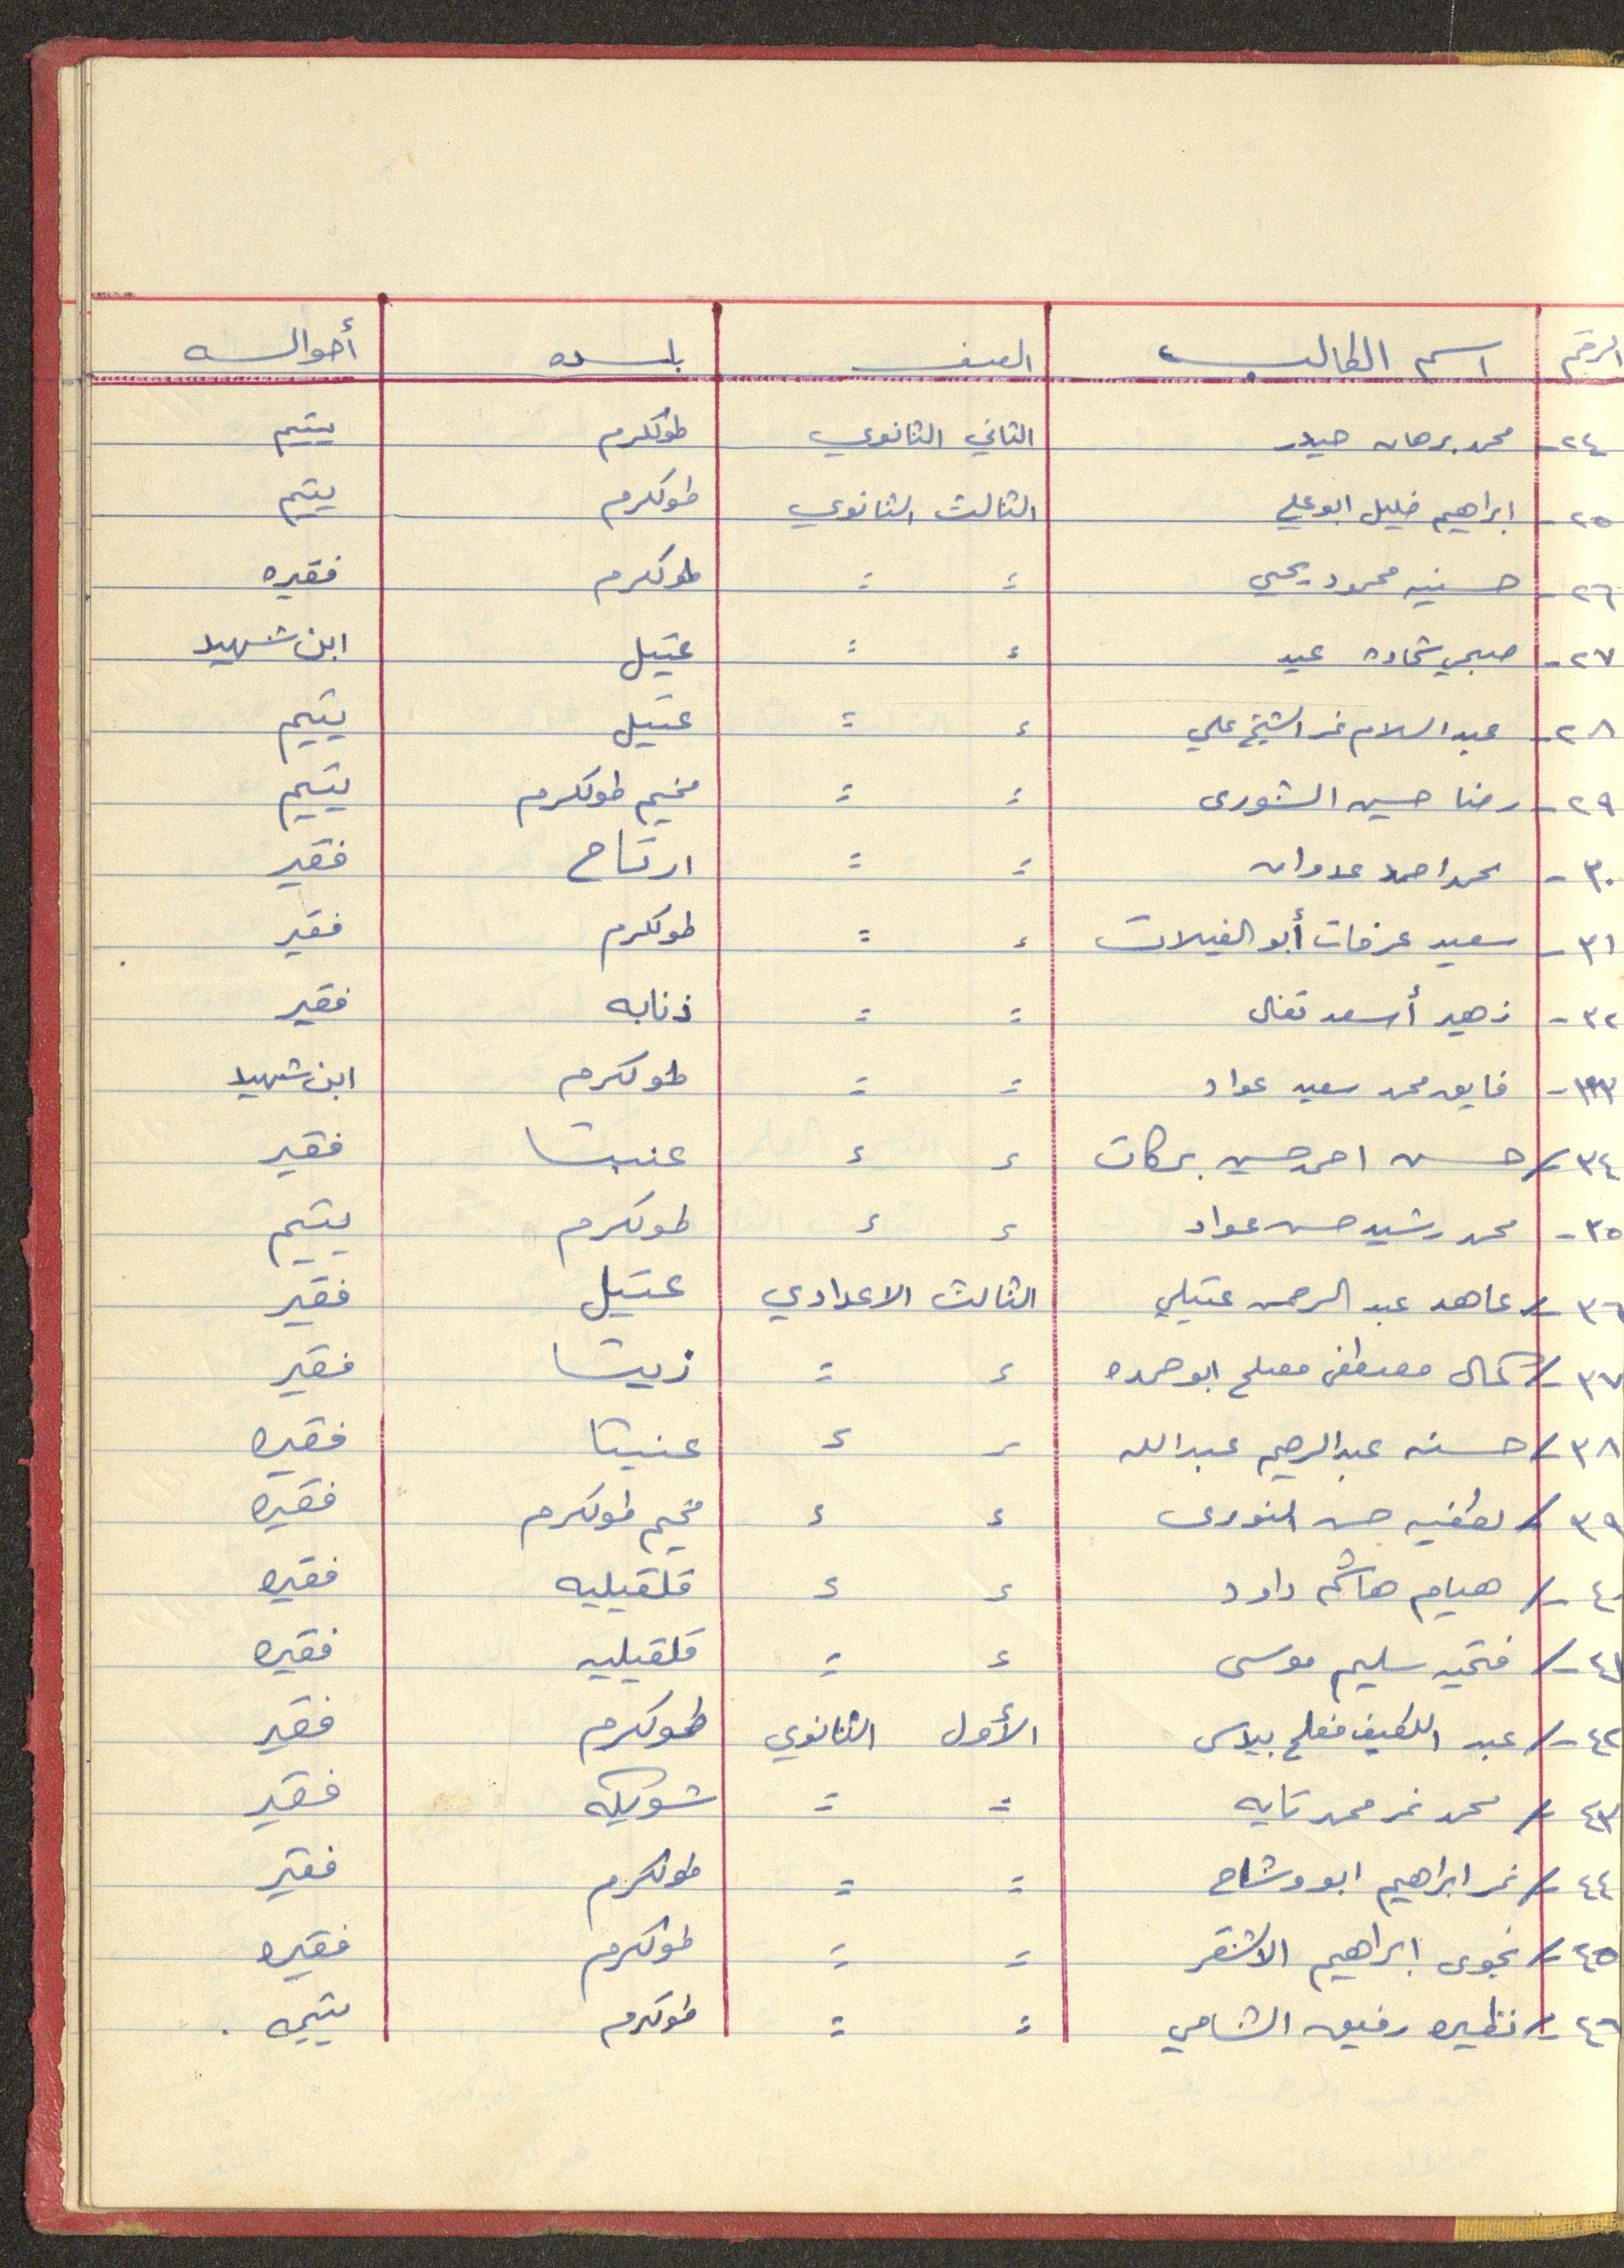 الرقم اسم الطالب الصف بلده أحواله
٢٤- محمد برهان حيدر الثاني الثانوي طولكرم يتيم
٢٥- ابراهيم خليل ابو علي الثالث الثانوي طولكرم يتيم
٢٦- حسنيه محمود يحيى = = طولكرم فقيره
٢٧- صبحي شحاده عيد = = عتيل ابن شهيد
٢٨- عبد السلام نمر الشيخ علي = = عتيل يتيم
٢٩- رضا حسين الشورى = = مخيم طولكرم يتيم
٣٠- محمد احمد علاوان = = ارتاح فقير
٣١- سعيد عرفات أبو الفيلات = = طولكرم فقير
٣٢- زهير أسعد تفال = = ذنابه فقير
٣٣- فايق محمد سعيد عواد = = طولكرم ابن شهيد
٣٤- حسن احمد حسين بركات = = عنبتا فقير
٣٥- محمد رشيد حسن عواد = = طولكرم يتيم
٣٦- عاهد عبد الرحمن عتيلي الثالث الاعدادي عتيل فقير
٣٧- كمال مصطفى مصلح ابو حمده = = زيتا فقير
٣٨- حسنه عبد الرحيم عبد الله = = عنبتا فقيره
٣٩- لطفيه حسن النورى = = مخيم طولكرم فقيره
٤٠- هيام هاشم داود = = قلقيليه فقيره
٤١- فتحيه سليم موسى = = قلقيليه فقيره
٤٢- عبد اللطيف مفلح بيلاس الأول الثانوي طولكرم فقير
٤٣- محمد نمر محمد تايه = = شويكه فقير
٤٤- نمر ابراهيم ابو وشاح = = طولكرم فقير
٤٥- نجوى ابراهيم الاشقر = = طولكرم فقيره
٤٦- نظيره رفيق الشامي = = طولكرم يتيمه .